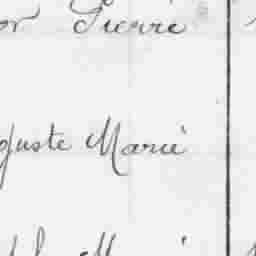 or Pierre
guste Marie